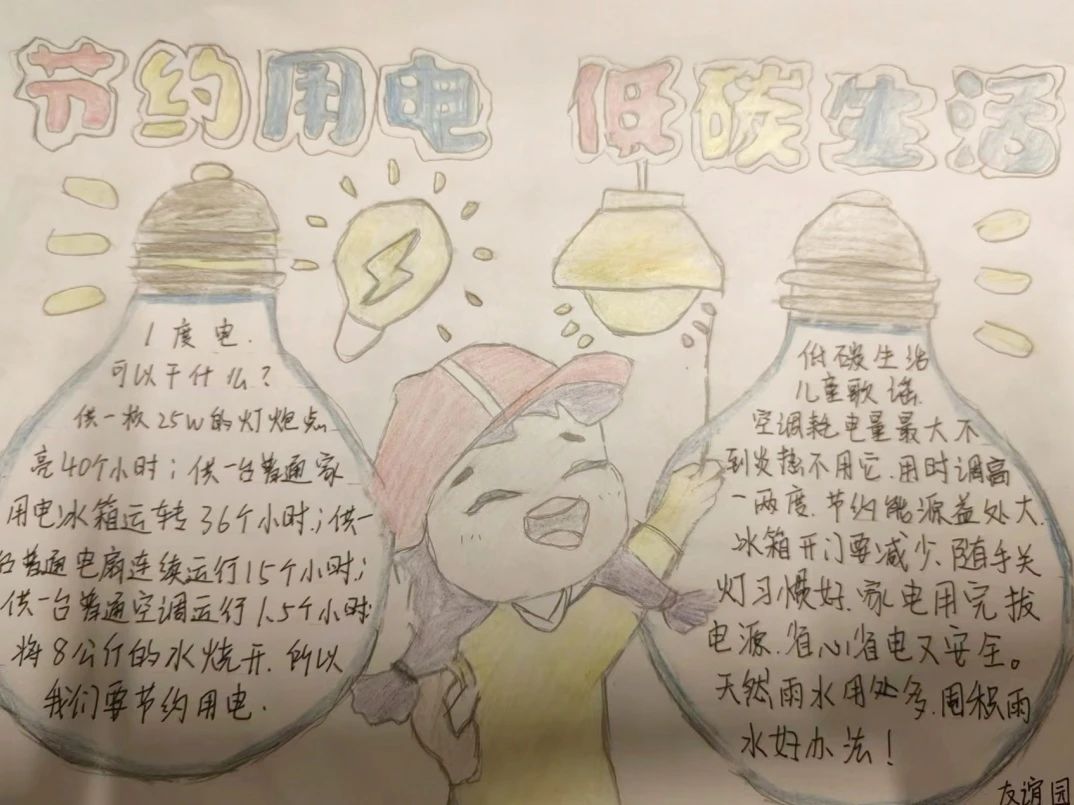 节约用电 低碳生活
1度电.
可以干什么?
供一枚25W的灯炮点
亮40个小时;供一台普通家
用电冰箱运转36个小时;供一
台普通电扇连续运行15个小时;
供一台普通空调运行1.5个小时
将8公斤的水烧开.所以
我们要节约用电.
低碳生活
儿童歌谣.
空调耗电量最大不
到炎热不用它.用时调高
一两度.节约能源益处大.
冰箱开门要减少.随手关
灯习惯好.家电用完拔
电源.省心省电又安全。
天然雨水用处多.囤积雨
水好办法!
友谊园